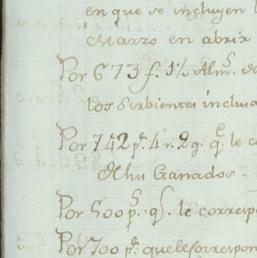 en que se incluyen l
Marzo en abrir
Por 673 f. 1½ Alm.s de
los Sirbientes inclus
Por 742 p.s 4 r. 2 g. q.e le c
Ganados.
Por 500 p.s q.e le corresp
Por 700 p.s que le correspon